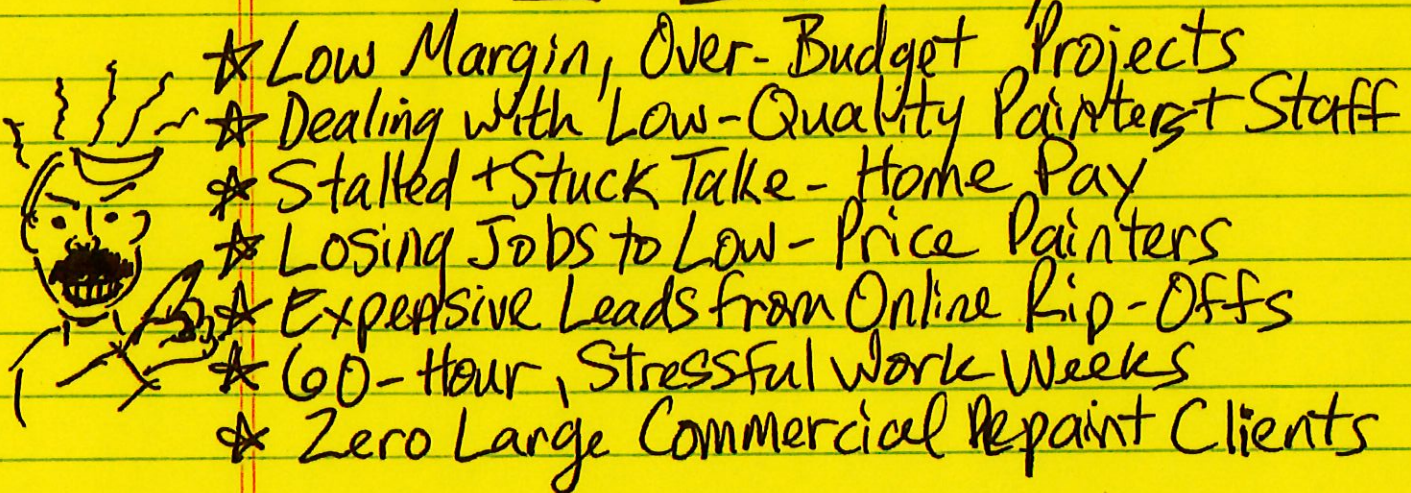 ☆ Low Margin, Over-Budget Projects
☆ Dealing with Low-Quality Painters + Staff
☆ Stalled + Stuck Take-Home Pay
☆ Losing Jobs to Low-Price Painters
☆ Expensive Leads from Online Rip-Offs
☆ 60-Hour, Stressful Work Weeks
☆ Zero Large Commercial Repaint Clients